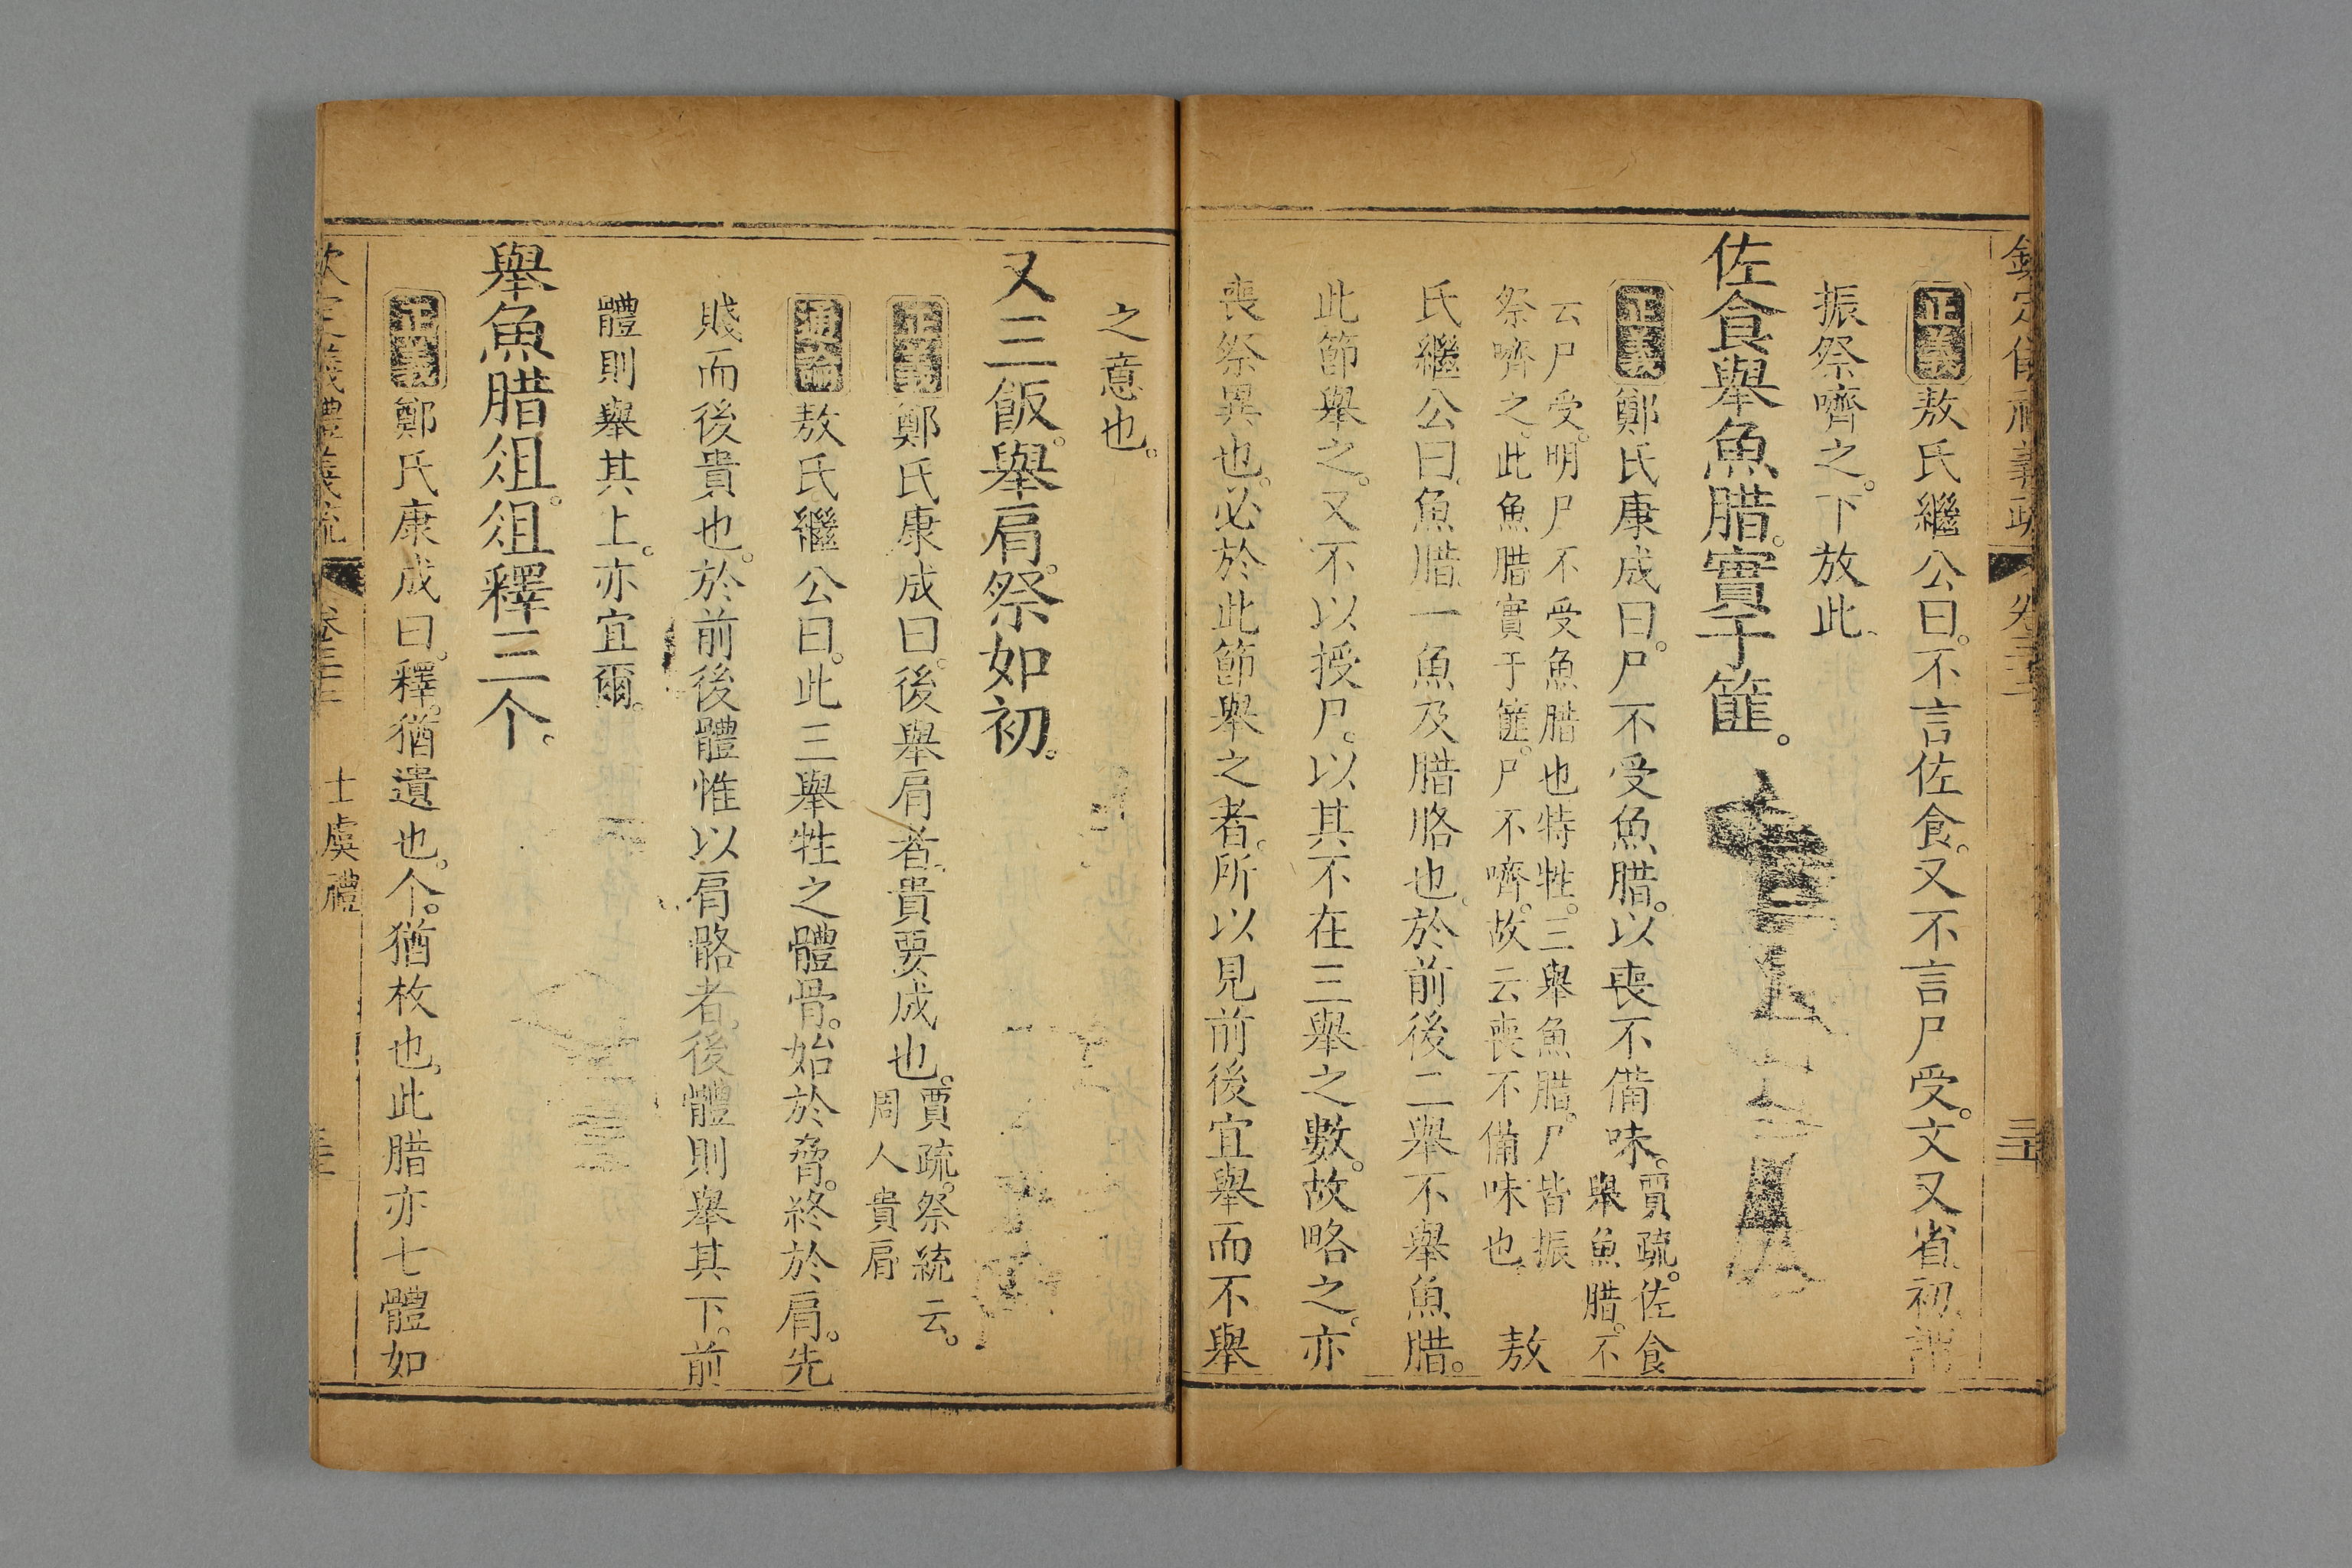 正義敖氏繼公曰。不言佐食。又不言尸受。文又省。初謂
振祭嚌之。下放此。
佐食舉魚腊。實于篚。
正義鄭氏康成曰。尸不受魚腊。以喪不備味。賈疏。佐食
舉魚腊。不
云尸受。明尸不受魚腊也特牲。三舉魚腊。尸皆振
祭嚌之。此魚腊實于篚。尸不嚌。故云喪不備味也。敖
氏繼公曰。魚腊一魚及腊胳也。於前後二舉不舉魚腊。
此節舉之。又不以授尸。以其不在三舉之數。故略之。亦
喪祭異也。必於此節舉之者。所以見前後宜舉而不舉
之意也。
又三飯。舉肩。祭如初。
正義鄭氏康成曰。後舉肩者。貴要成也。賈疏。祭統云。
周人貴肩
通論敖氏繼公曰。此三舉牲之體骨。始於脅。終於肩。先
賤而後貴也。於前後體惟以肩胳者。後體則舉其下。前
體則舉其上。亦宜爾。
舉魚腊俎。俎釋三个。
正義鄭氏康成曰。釋。猶遺也。个。猶枚也。此腊亦七體如
士虞禮